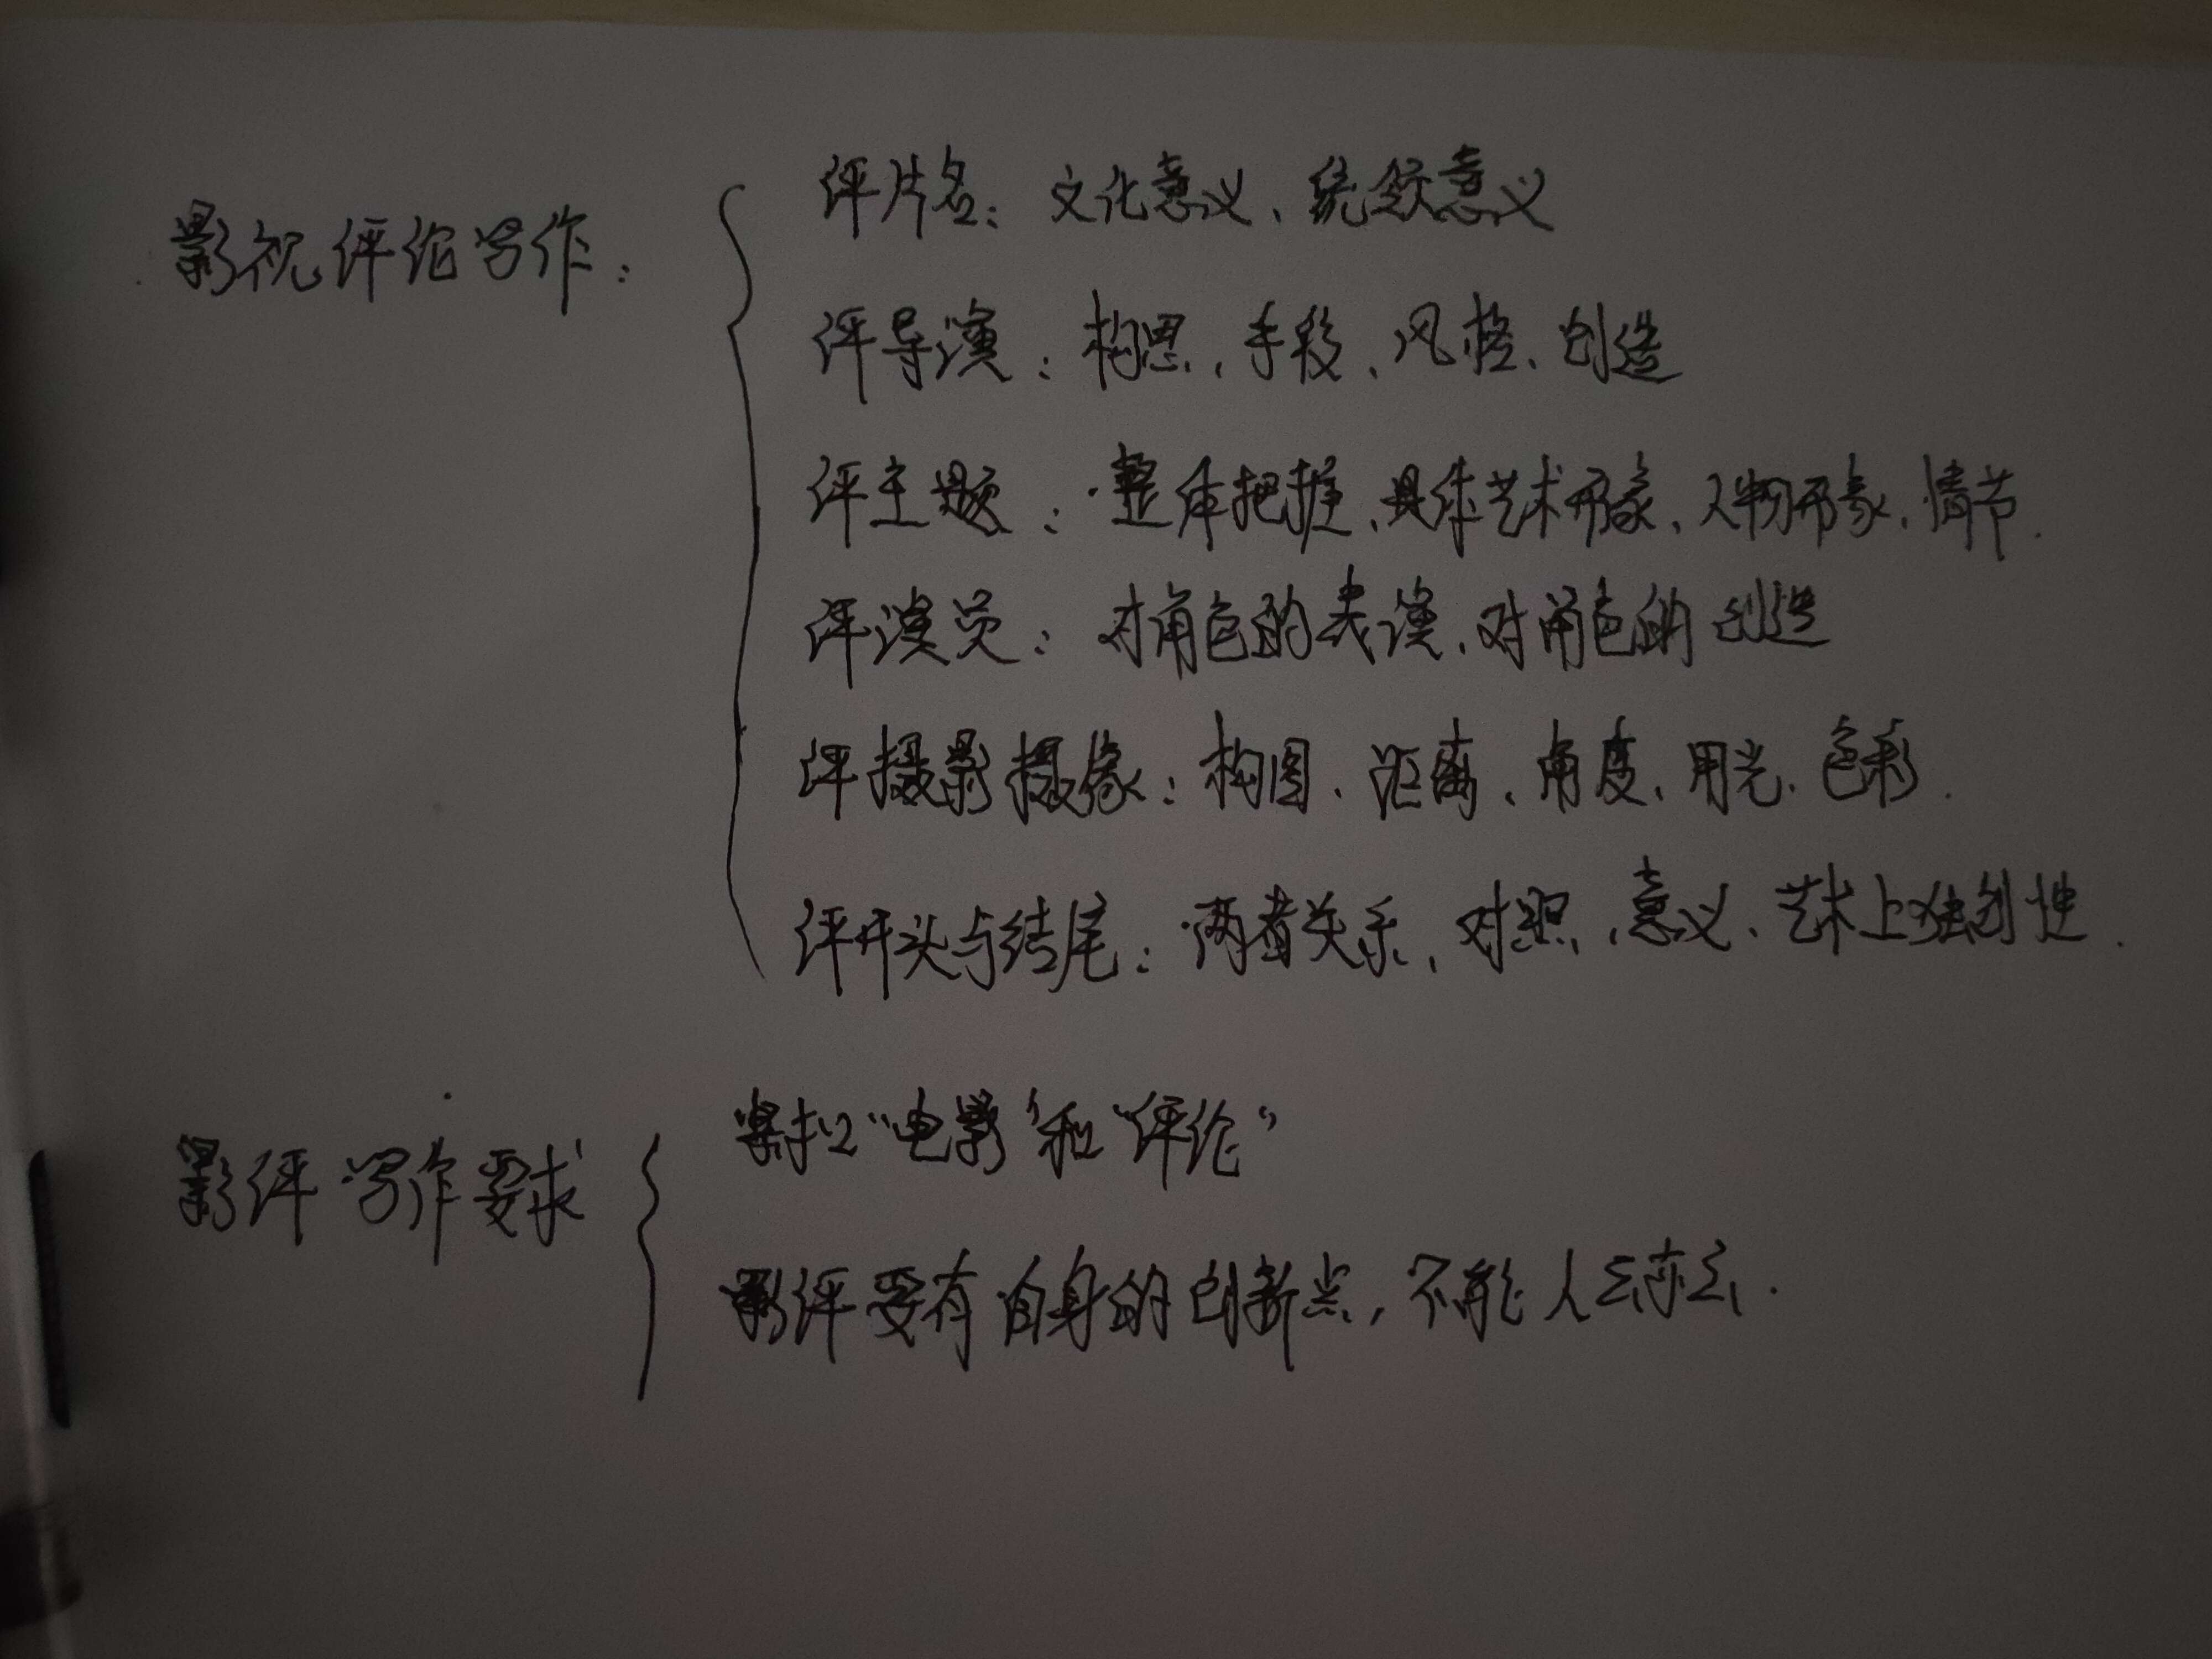 影视评论写作：
评片名：文化意义、统领意义
评导演：构思、手段、风格、创造
评主题：整体把握、具体艺术形象、人物形象、情节.
评演员：对角色的表演、对角色的创造
评摄影摄像：构图、距离、角度、用光、色彩.
评开头与结尾：两者关系、对照、意义、艺术上独创性.
影评写作要求
紧扣“电影”和“评论”
影评要有自身的创新点，不能人云亦云.